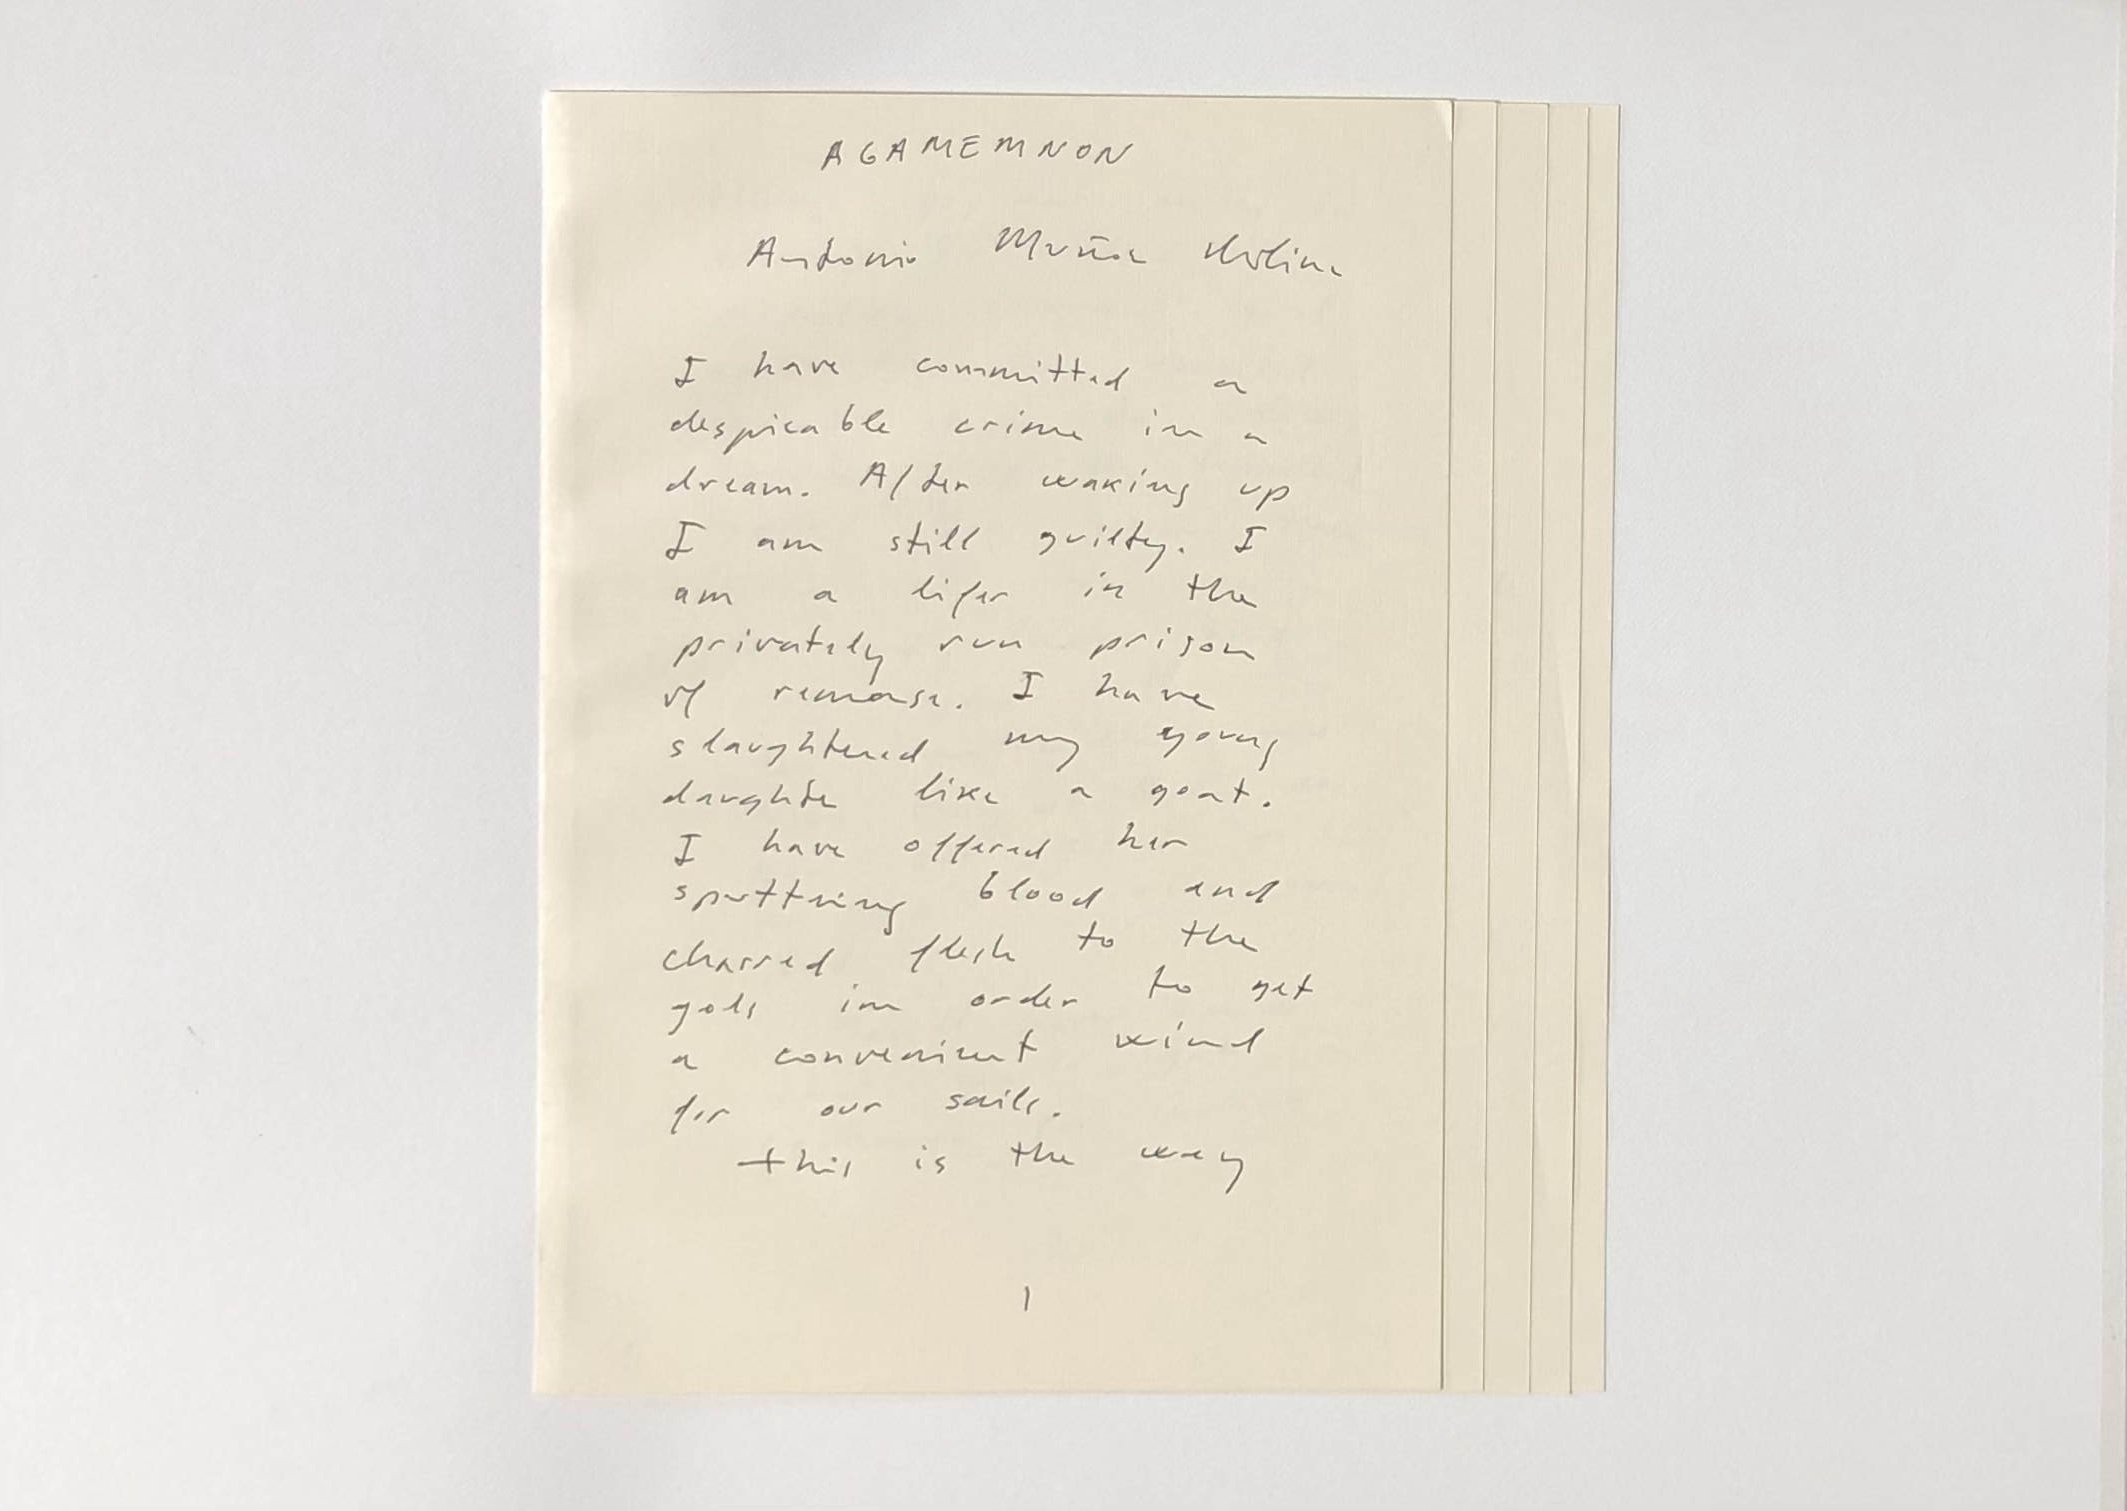 AGAMEMNON
Antonio Muñoz Molina
I have committed a
despicable crime in a
dream. After waking up
I am still guilty. I
am a lifer in the
privately run prison
of remorse. I have
slaughtered my young
daughter like a goat.
I have offered her
sputtering blood and
charred flesh to the
gods in order to get
a convenient wind
for our sails.
This is the way
1